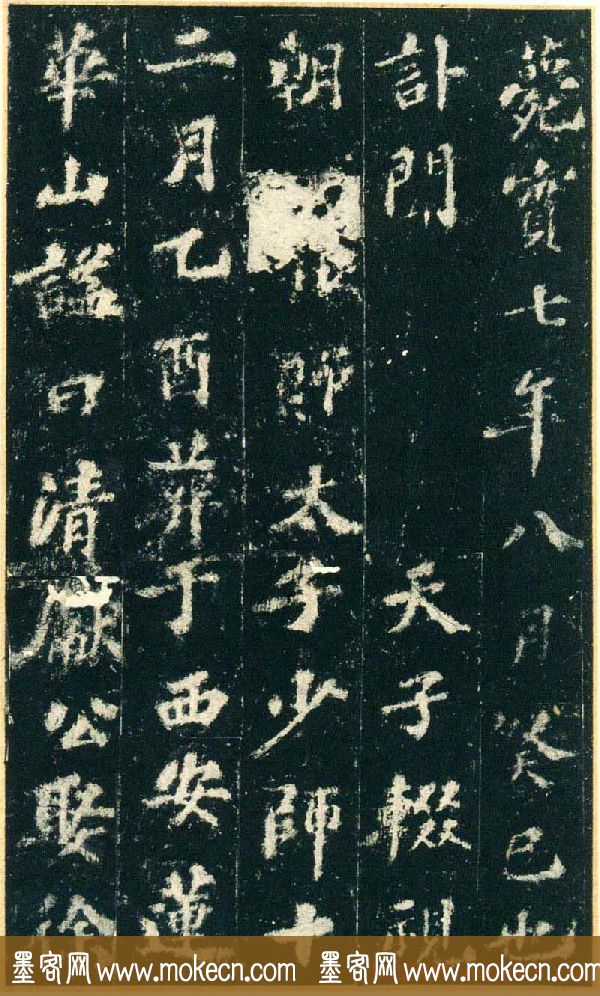 薨實七年八月癸巳也
訃聞 天子輟視
朝 太子少師十
二月乙酉葬于西安蓮
華山謚曰清獻公娶徐
墨客网 www.mokecn.com 墨客网 www.mokecn.com